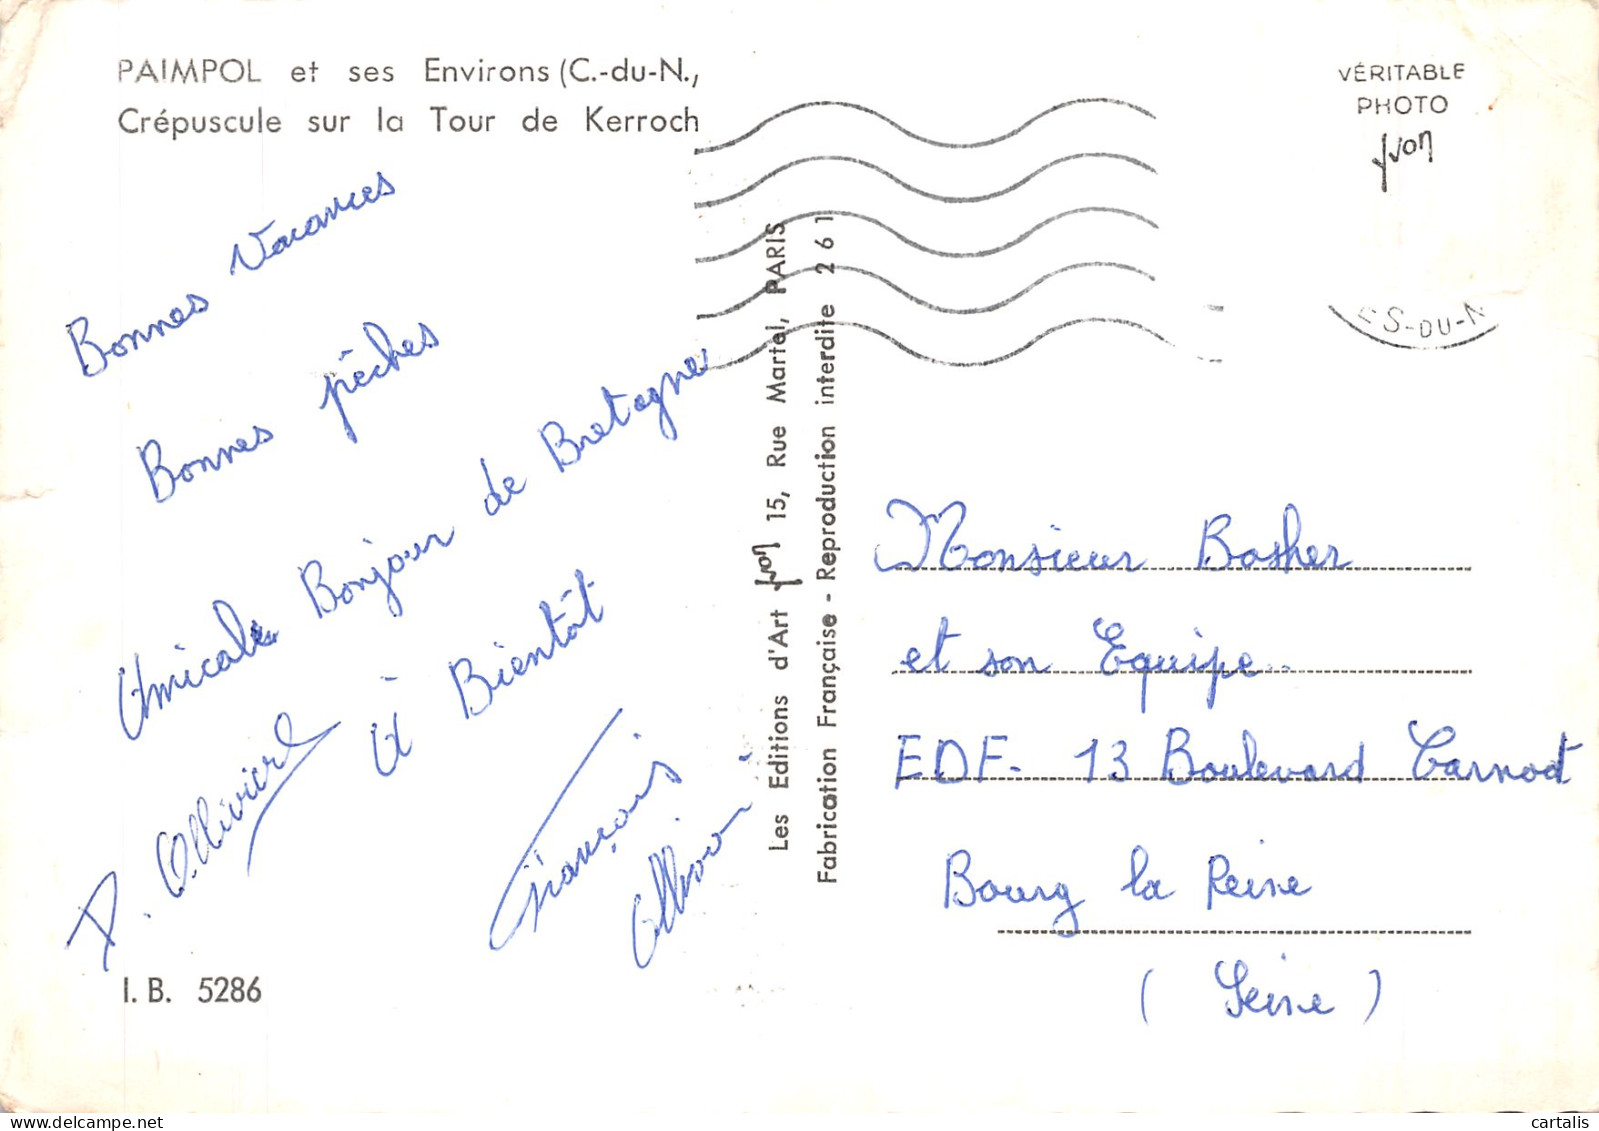 PAIMPOL et ses Environs (C.-du-N.,
Crépuscule sur la Tour de Kerroch
VÉRITABLE
PHOTO
yvon
ES-DU-N
Bonnes Vacances
Bonnes pêches
Amicale Bonjour de Bretagne
à Bientôt
P. Ollivier
François
I. B. 5286
Les Editions d'Art yvon 15, Rue Martel, PARIS
Fabrication Française - Reproduction interdite 261
Monsieur Bosher
et son Equipe..
EDF - 13 Boulevard Carnot
Bourg la Reine
(Seine)
cartalis